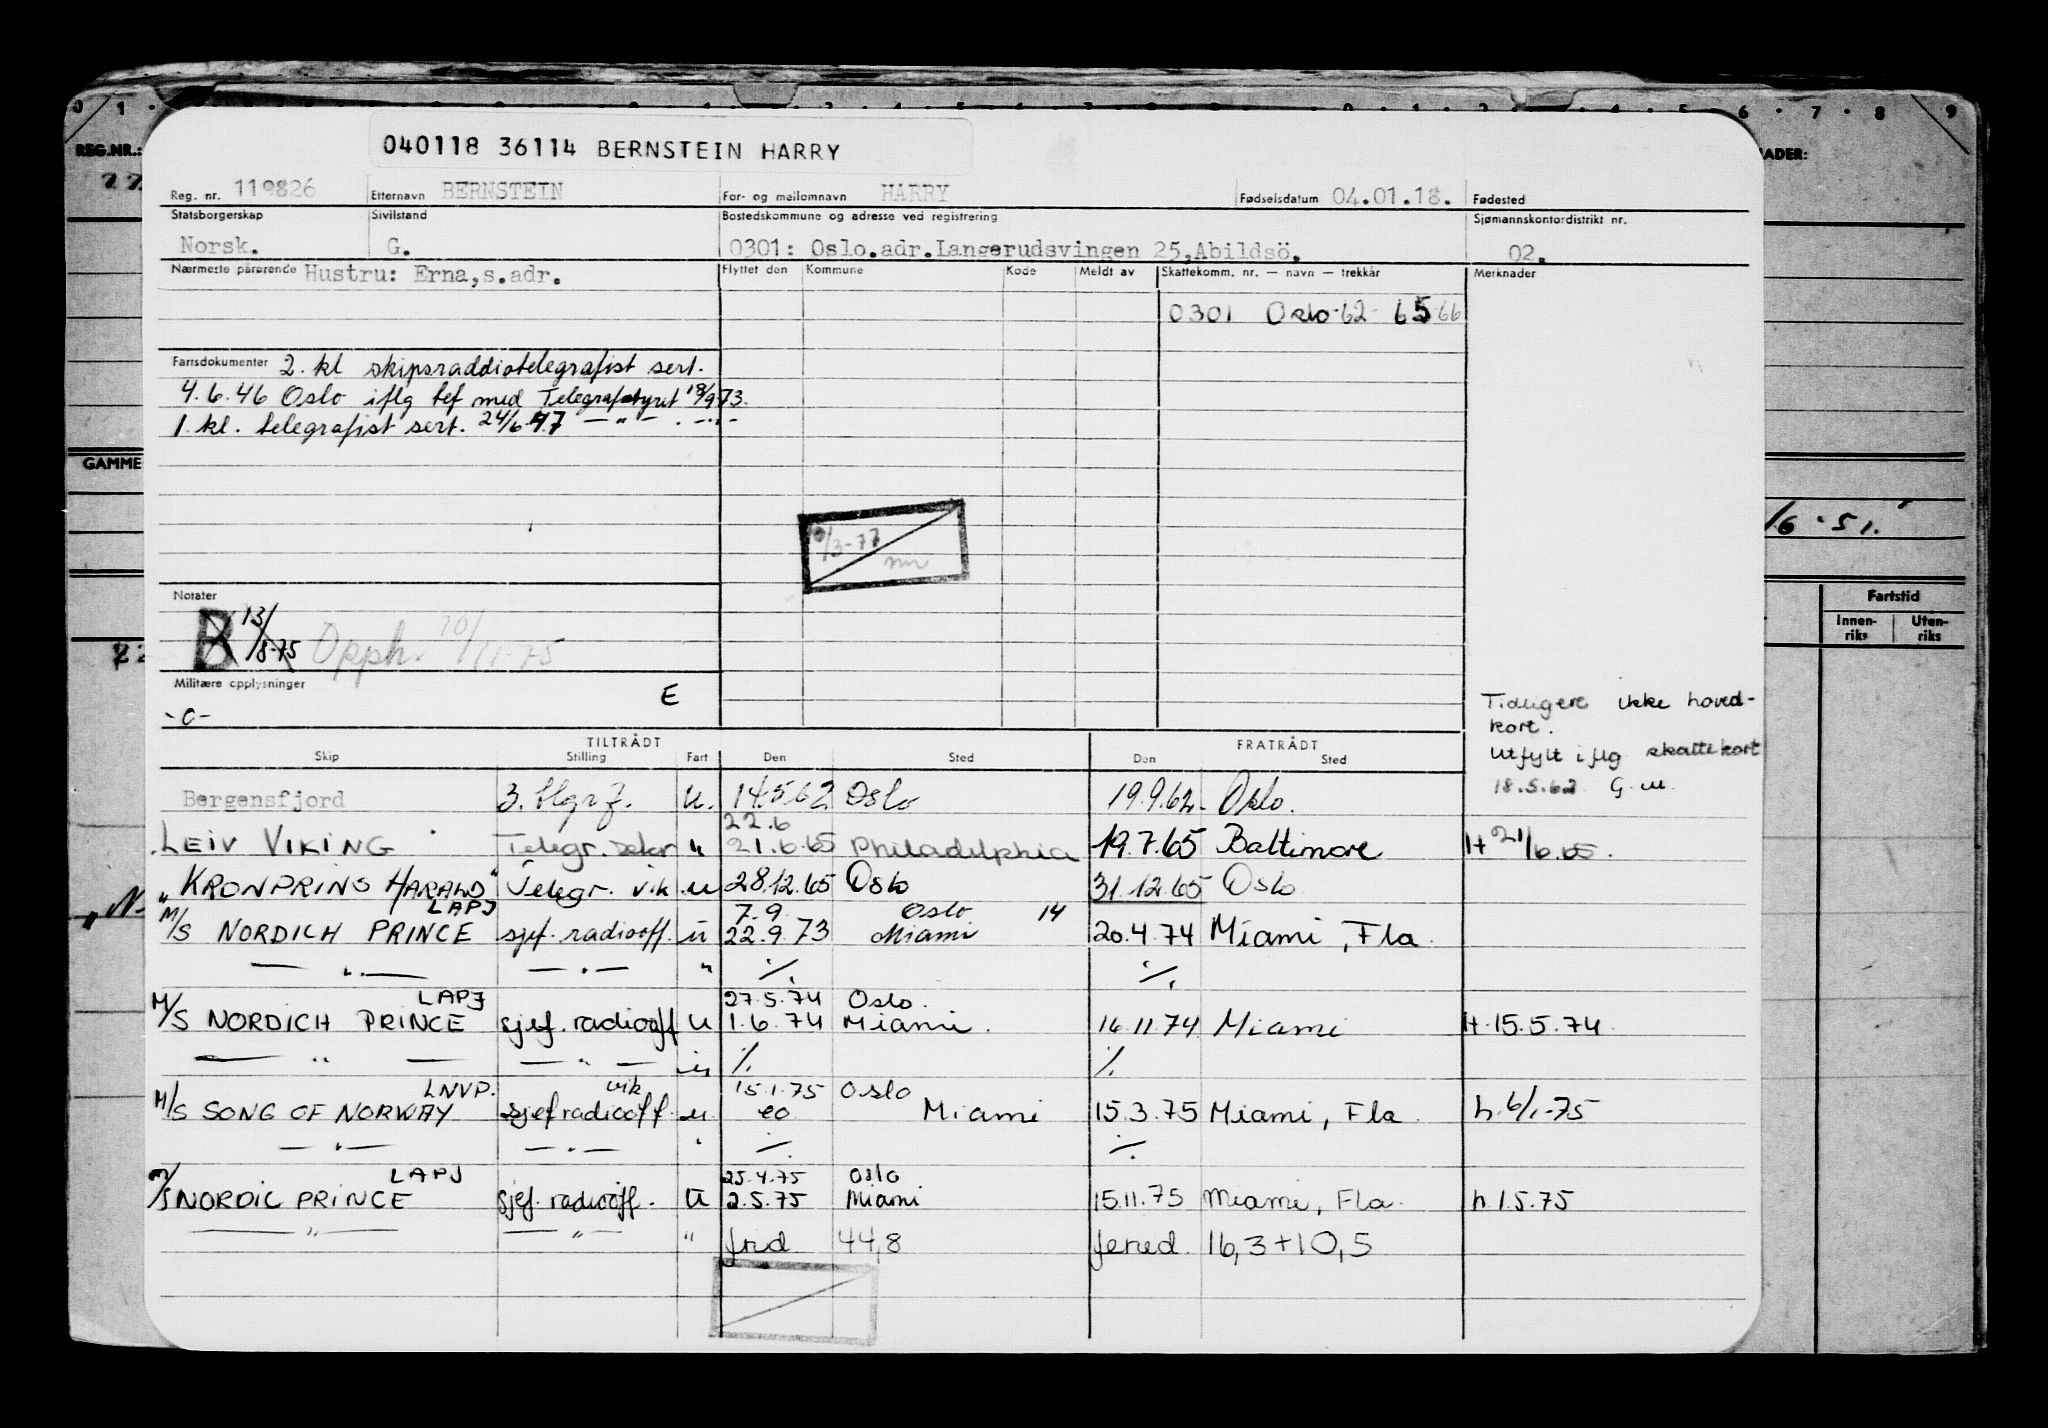 0 1 6 · 7 · 8 9
REG.NR.:
ADER:
040118 36114 BERNSTEIN HARRY
Reg. nr. 119826 Etternavn BERNSTEIN For- og mellomnavn HARRY Fødselsdatum 04.01.18. Fødested
Statsborgerskap Sivilstand Bostedskommune og adresse ved registrering Sjømannskontordistrikt nr.
Norsk. G. 0301: Oslo.adr.Langerudsvingen 25,Abildsö. 02.
Nærmeste pårørende Hustru: Erna,s.adr. Flyttet den Kommune Kode Meldt av Skattekomm. nr. — navn — trekkår Merknader
0301 Oslo-62- 65-66
Fartsdokumenter 2. kl skipsraddiotelegrafist sert.
4.6.46 Oslo iflg tef med Telegrafstyret 18/9-73.
1. kl. telegrafist sert. 24/6.47 — " — . — " —
GAMME
/6 · 51.
10/3-77
Notater
B 13/8-75 Opph. 10/11-75
Fartstid
Innen-riks Uten-riks
Militære opplysninger
E
-0-
Tidligere ikke hoved-
kort.
Utfylt iflg skattekort
18.5.62 G.M.
TILTRÅDT FRATRÅDT
Skip Stilling Fart Den Sted Den Sted
Bergensfjord 3. tlgrf. u. 14.5.62 Oslo 19.9.62- Oslo.
22.6
LEIV VIKING Telegr. Sekr " 21.6.65 Philadelphia 19.7.65 Baltimore H 21/6.65.
"KRONPRINS HARALD" Telegr. vik u 28.12.65 Oslo 31.12.65 Oslo
LAPJ 7.9. Oslo 14
M/S NORDICH PRINCE sjef. radiooff. u 22.9.73 Miami 20.4.74 Miami, Fla.
— " — — " — " ./. ./.
LAPJ 27.5.74 Oslo.
M/S NORDICH PRINCE sjef. radiooff u 1.6.74 Miami. 16.11.74 Miami H.15.5.74.
— " — — " — " ./. ./.
LNVP. vik 15.1.75 Oslo
M/S SONG OF NORWAY sjef radiooff. u. 20. Miami 15.3.75 Miami, Fla. h.6/1-75
— " — — " — " ./. ./.
LAPJ 25.4.75 Oslo
M/S NORDIC PRINCE sjef. radiooff. u 2.5.75 Miami 15.11.75 Miami, Fla. h.1.5.75
— " — — " — " frid 44,8 feried. 16,3+10,5